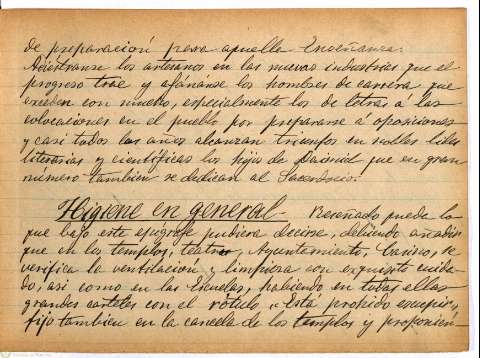 de preparación para aquella Enseñanza.
Adiestranse los artesanos en las nuevas industrias que el
progreso trae y afánanse los hombres de carrera que
exceden con número, especialmente los de letras á las
colocaciones en el pueblo por prepararse á oposiciones
y casi todos los años alcanzan triunfos en nobles lides
literarias y científicas los hijos de Daimiel que en gran
número tambien se dedican al Sacerdocio.
Higiene en general - Reseñado queda lo
que bajo este epigrafe pudiera decirse, debiendo añadir
que en los templos, teatro, Ayuntamiento, Casino, se
verifica la ventilacion y limpieza con exquisito cuida-
do, asi como en las Escuelas, habiendo en todas ellas
grandes carteles con el rótulo "Esta prohido escupir",
fijo tambien en la cancela de los templos y proponién